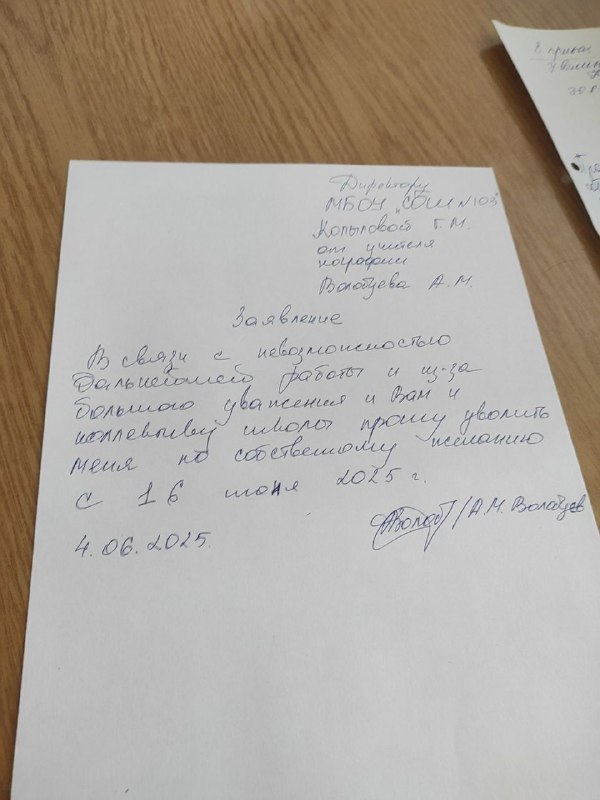 Директору
МБОУ "СОШ №103"
Копыловой Г.М.
от учителя
географии
Волобуева А.М.
Заявление
В связи с невозможностью
дальнейшей работы и из-за
большого уважения к Вам и
коллективу школы прошу уволить
меня по собственному желанию
с 16 июня 2025 г.
А.М. Волобуев
4.06.2025
В приказ